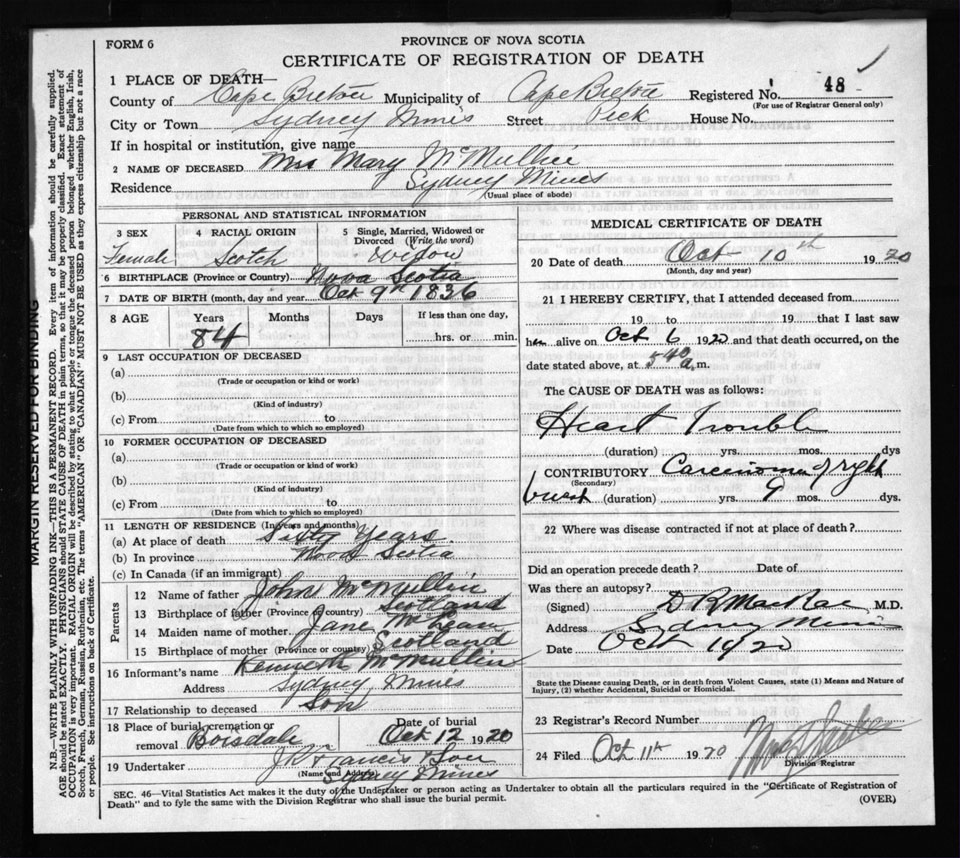 FORM 6
PROVINCE OF NOVA SCOTIA
CERTIFICATE OF REGISTRATION OF DEATH
1 PLACE OF DEATH—
County of Cape Breton Municipality of Cape Breton Registered No. 48
(For use of Registrar General only)
City or Town Sydney Mines Street Peck House No.
If in hospital or institution, give name
2 NAME OF DECEASED Mrs Mary McMullin
Residence Sydney Mines
(Usual place of abode)
PERSONAL AND STATISTICAL INFORMATION
3 SEX Female
4 RACIAL ORIGIN Scotch
5 Single, Married, Widowed or Divorced (Write the word) Widow
6 BIRTHPLACE (Province or Country) Nova Scotia
7 DATE OF BIRTH (month, day and year) Oct 9th 1836
8 AGE Years Months Days If less than one day,
84 hrs. or min.
9 LAST OCCUPATION OF DECEASED
(a)
(Trade or occupation or kind or work)
(b)
(Kind of industry)
(c) From to
(Date from which to which so employed)
10 FORMER OCCUPATION OF DECEASED
(a)
(Trade or occupation or kind or work)
(b)
(Kind of industry)
(c) From to
(Date from which to which so employed)
11 LENGTH OF RESIDENCE (In years and months)
(a) At place of death Sixty Years
(b) In province Nova Scotia
(c) In Canada (if an immigrant)
Parents
12 Name of father John McMullin
13 Birthplace of father (Province or country) Scotland
14 Maiden name of mother Jane McLean
15 Birthplace of mother (Province or country) Scotland
16 Informant's name Kenneth McMullin
Address Sydney Mines
17 Relationship to deceased Son
18 Place of burial, cremation or removal Boisdale Date of burial Oct 12 1920
19 Undertaker J R Francis Son
(Name and Address) Sydney Mines
MEDICAL CERTIFICATE OF DEATH
20 Date of death Oct 10th 1920
(Month, day and year)
21 I HEREBY CERTIFY, that I attended deceased from
19 to 19 that I last saw
h alive on Oct 6 1920 and that death occurred, on the
date stated above, at 5 40 a. m.
The CAUSE OF DEATH was as follows:
Heart Trouble
(duration) yrs. mos. dys
CONTRIBUTORY Carcenoma of right
(Secondary)
breast (duration) yrs. 9 mos. dys.
22 Where was disease contracted if not at place of death?
Did an operation precede death? Date of
Was there an autopsy?
(Signed) D R MacRae M.D.
Address Sydney Mines
Date Oct 1920
State the Disease causing Death, or in death from Violent Causes, state (1) Means and Nature of
Injury, (2) whether Accidental, Suicidal or Homicidal.
23 Registrar's Record Number
24 Filed Oct 11th 1920
Division Registrar
SEC. 46—Vital Statistics Act makes it the duty of the Undertaker or person acting as Undertaker to obtain all the particulars required in the "Certificate of Registration of
Death" and to fyle the same with the Division Registrar who shall issue the burial permit.
(OVER)
MARGIN RESERVED FOR BINDING
N.B.—WRITE PLAINLY WITH UNFADING INK—THIS IS A PERMANENT RECORD. Every item of information should be carefully supplied.
AGE should be stated EXACTLY. PHYSICIANS should STATE CAUSE OF DEATH in plain terms, so that it may be properly classified. Exact statement of
OCCUPATION is very important. RACIAL ORIGIN will be described by stating to what people or tongue the deceased person belonged whether English, Irish,
Scotch, French, German, Russian, Ruthenian, etc. The terms "AMERICAN" OR "CANADIAN" MUST NOT BE USED as they express citizenship but not a race
or people. See instructions on back of Certificate.